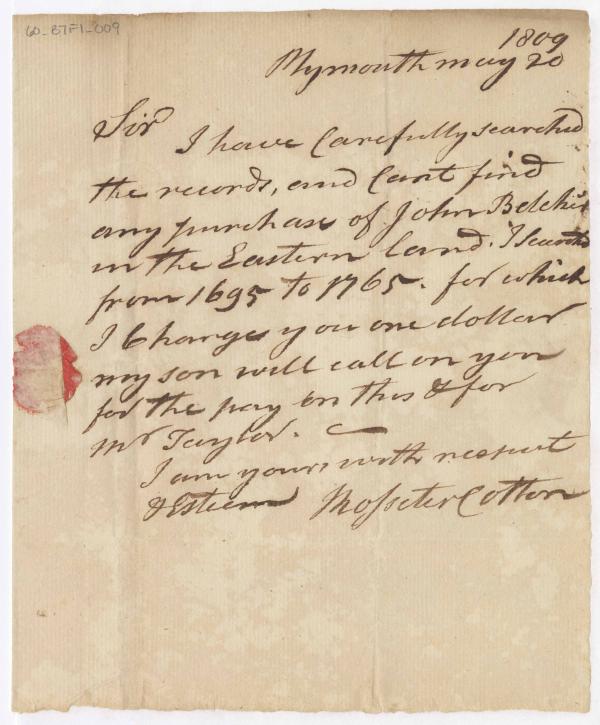 60_B7F1_009
1809
Plymouth may 20
Sir
I have Carefully searched
the records, and Cant find
any purchase of John Belcher
in the Eastern land. I Searchd
from 1695 to 1765. for which
I Charge you one dollar
my son will call on you
for the pay on this & for
mr Taylor.
I am yours with respect
& Esteem Rosseter Cotton